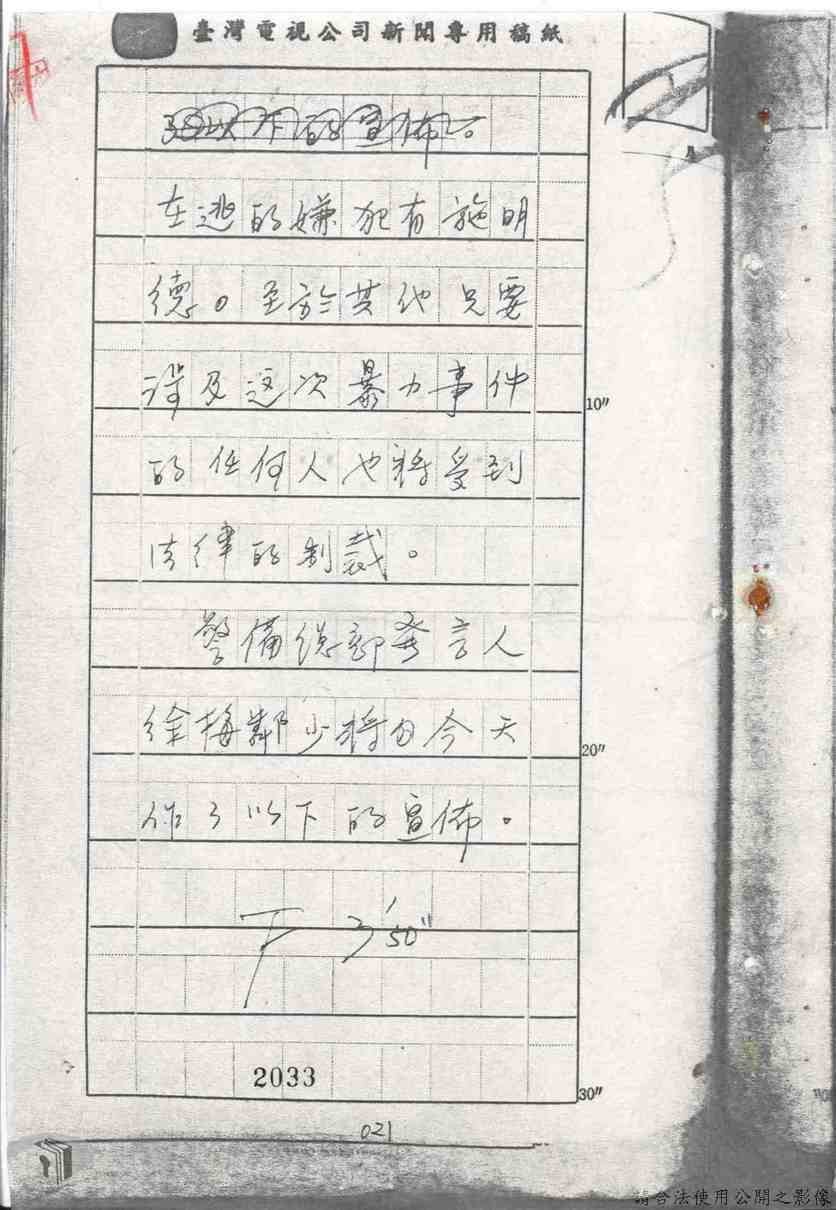 臺灣電視公司新聞專用稿紙
了以下的宣佈。
在逃的嫌犯有施明
德。至於其他只要
涉及這次暴力事件
10″
的任何人也將受到
法律的制裁。
警備總部發言人
徐梅鄰少將自今天
20″
作了以下的宣佈。
下 3′50″
2033
30″
021
月
請合法使用公開之影像